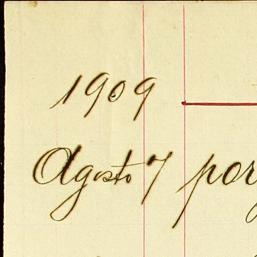 1909
Agosto 7 por